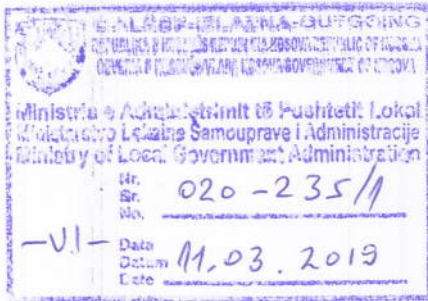 E DALËSE-IZLAZNA-OUTGOING
Ministria e Administrimit të Pushtetit Lokal
Ministarstvo Lokalne Samouprave i Administracije
Ministry of Local Government Administration
Nr.
Br.
No.
020-235/1
-VI-
Data
Datum
Date
11.03.2019